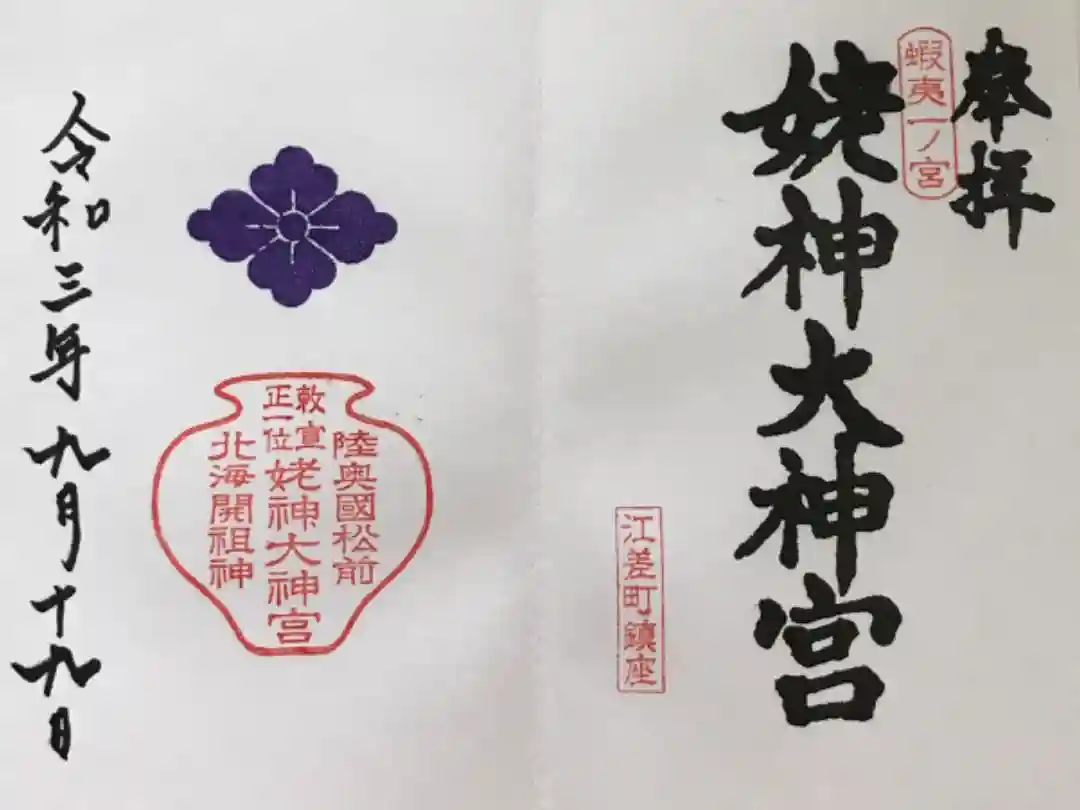 奉拝
蝦夷一ノ宮
姥神大神宮
江差町鎮座
陸奥國松前
敕宣
正一位
姥神大神宮
北海開祖神
令和三年九月十九日